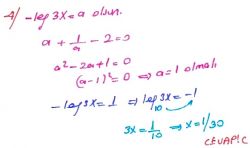 4/ -log3x=a olsun.
a + 1/a - 2 = 0
a² - 2a + 1 = 0
(a-1)² = 0 ⇒ a=1 olmalı
-log3x = 1 ⇒ log3x = -1
10
3x = 1/10 ⇒ x = 1/30
CEVAP: C